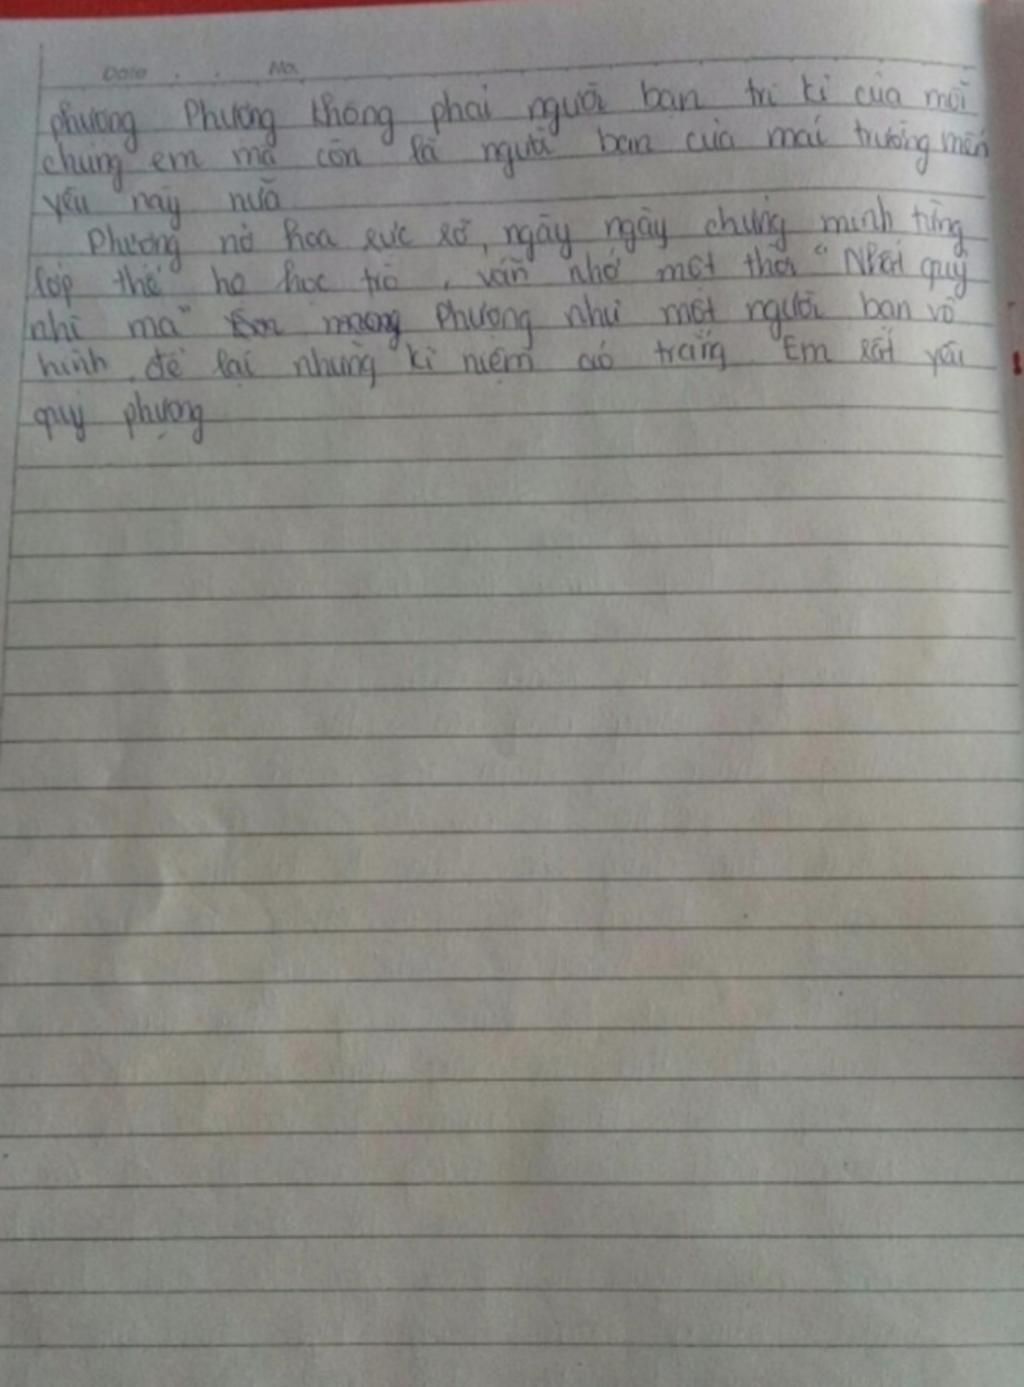 Date . . No.
phượng Phượng không phải người bạn tri kỉ của mỗi
chúng em mà còn là người bạn của mái trường mến
yêu này nữa
Phượng nở hoa rực rỡ, ngày ngày chứng minh từng
lớp thế hệ học trò, vẫn nhớ một thời "Nhất quỷ
nhì ma" Phượng như một người bạn vô
hình, để lại những kỉ niệm áo trắng Em rất yêu
quý phượng